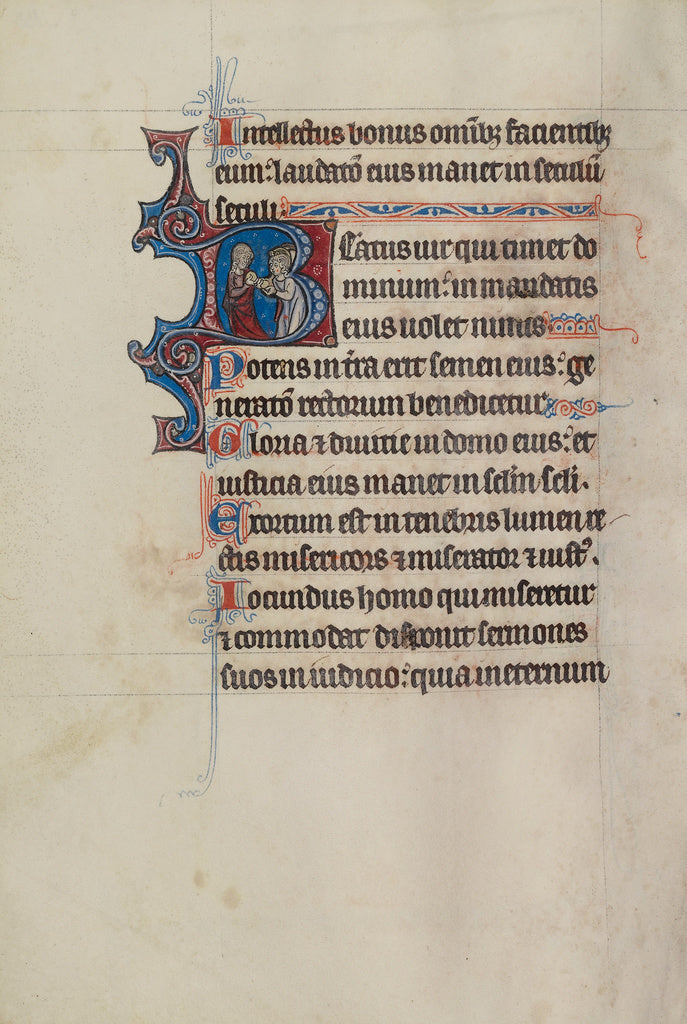 Intellectus bonus omĩbꝫ facientibꝫ
eum: laudatõ eius manet in seculũ
seculi:
Beatus uir qui timet do
minum: in mandatis
eius uolet nimis
Potens in t̃ra erit semen eius: ge
neratõ rectorum benedicetur
Gloria ⁊ diuitie in domo eius: et
iusticia eius manet in sclm̃ scłi.
Exortum est in tenebris lumen re
ctis misericors ⁊ miserator ⁊ iustꝰ.
Iocundus homo qui miseretur
⁊ commodat disponit sermones
suos in iudicio: quia ineternum